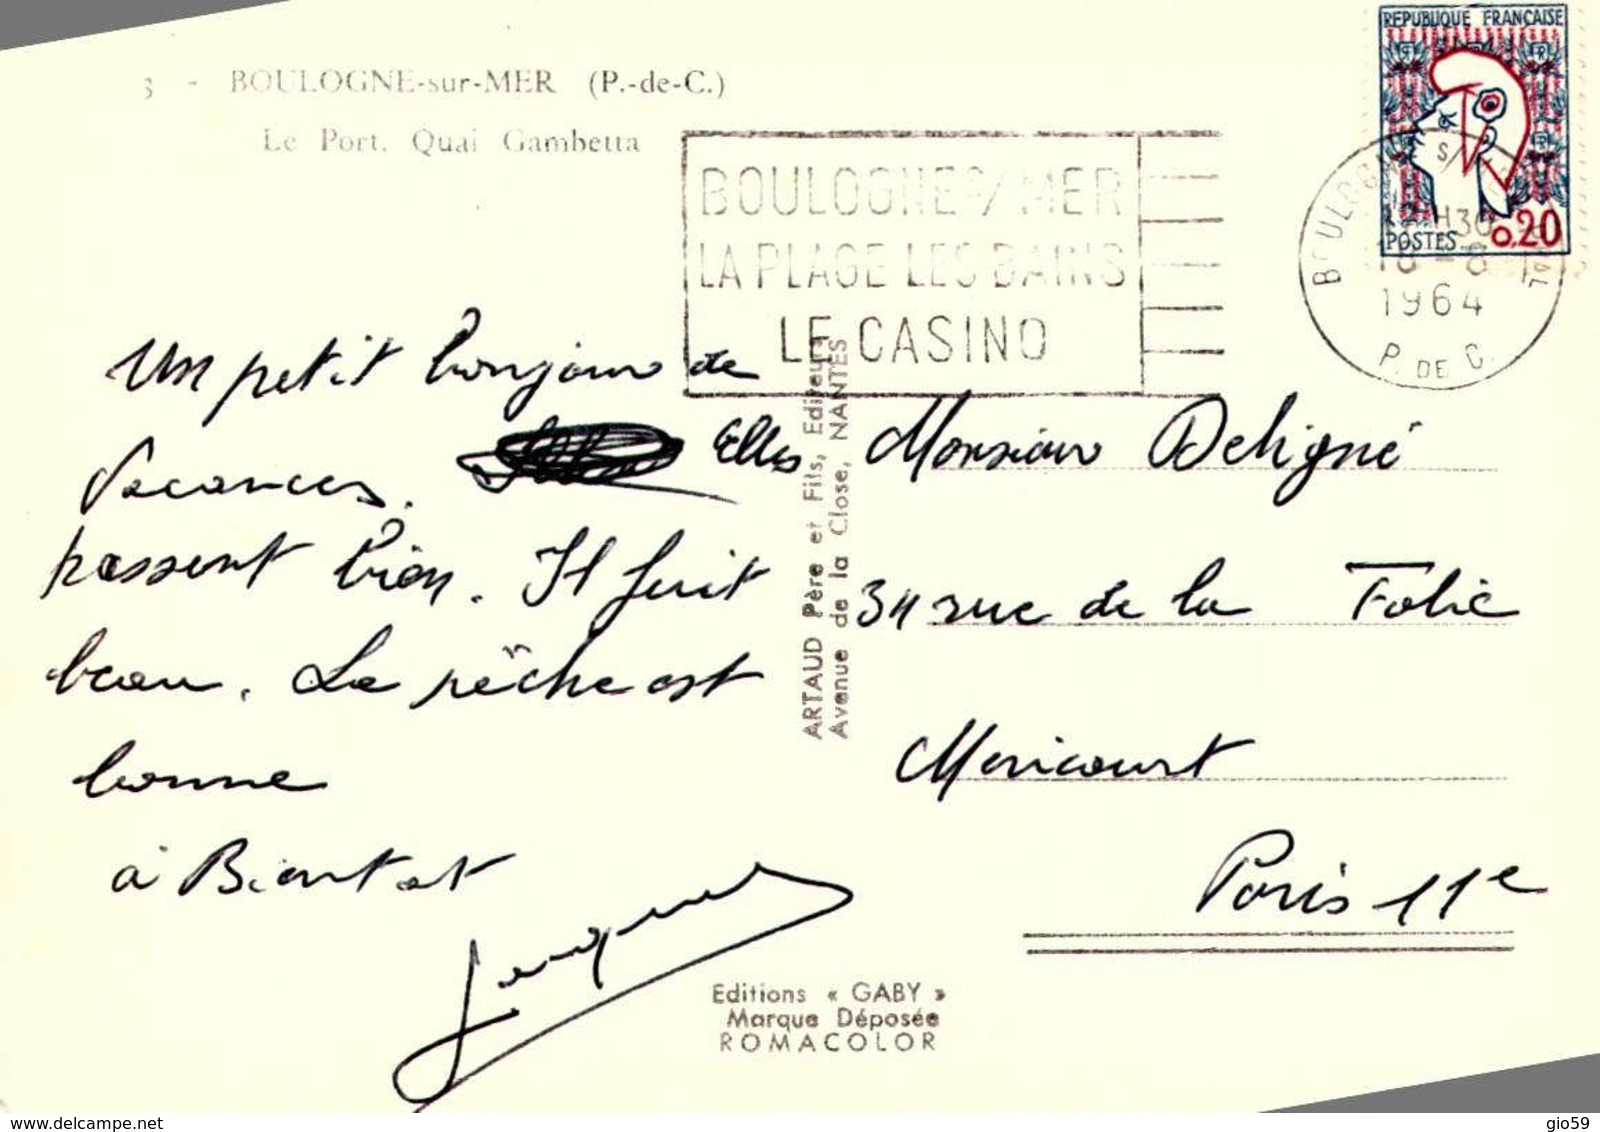 - BOULOGNE-sur-MER (P.-de-C.)
Le Port, Quai Gambetta
REPUBLIQUE FRANÇAISE
POSTES 0,20
BOULOGNE S/MER
LA PLAGE LES BAINS
LE CASINO
BOULOGNE S/
1964
P. DE C.
Un petit bonjour de
Vacances. Elles
passent bien. Il fait
beau. La pêche est
bonne
à Bientot
Jacques
ARTAUD Père et Fils, Editeurs
Avenue de la Close, NANTES
Monsieur Deligné
34 rue de la Folie
Mericourt
Paris 11e
Editions « GABY »
Marque Déposée
ROMACOLOR
delcampe.net
gio59